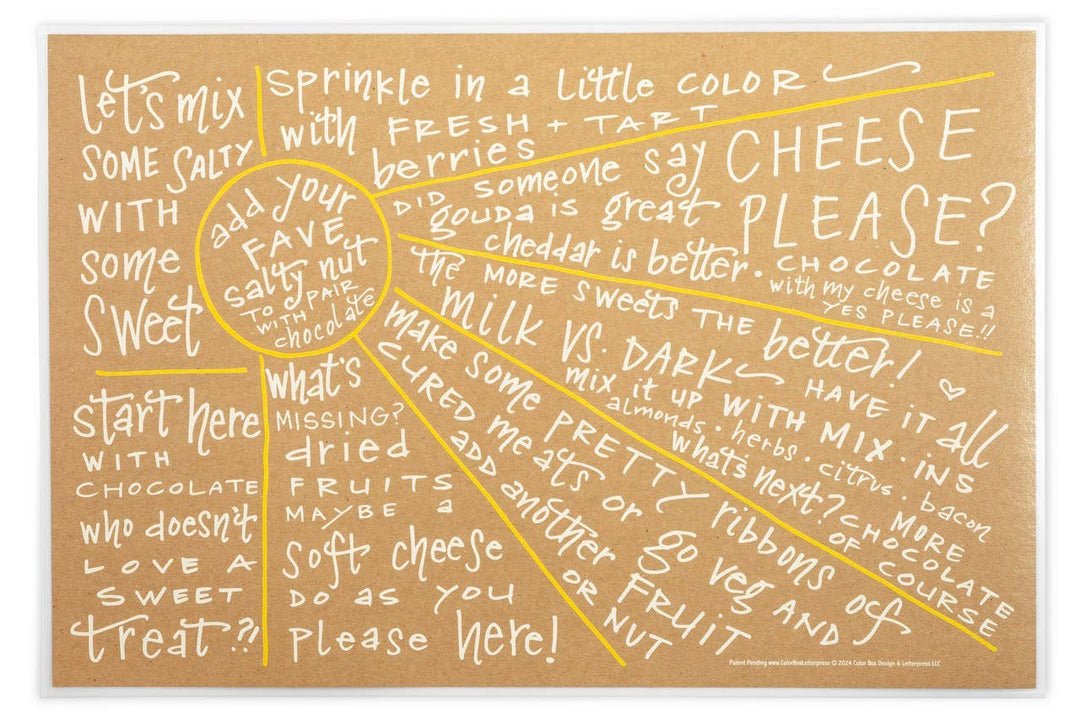 let's mix
SOME SALTY
WITH
some
sweet
sprinkle in a little COLOR
with FRESH + TART
berries
add your
FAVE
salty nut
TO PAIR
WITH
chocolate
DID someone say CHEESE
PLEASE?
gouda is great
cheddar is better.
CHOCOLATE
with my cheese is a
YES PLEASE!!
the MORE sweets THE better!
milk vs. DARK
HAVE IT all
mix it up WITH MIX.INS
almonds. herbs. citrus. bacon
what's next? MORE
CHOCOLATE
OF COURSE
make some PRETTY ribbons of
CURED meats or go veg AND
ADD another FRUIT
OR NUT
what's
MISSING?
dried
FRUITS
MAYBE a
soft cheese
DO as YOU
please here!
start here
WITH
CHOCOLATE
who doesn't
LOVE A
SWEET
treat?!
Patent Pending www.ColorBoxLetterpress © 2024 Color Box Design & Letterpress LLC